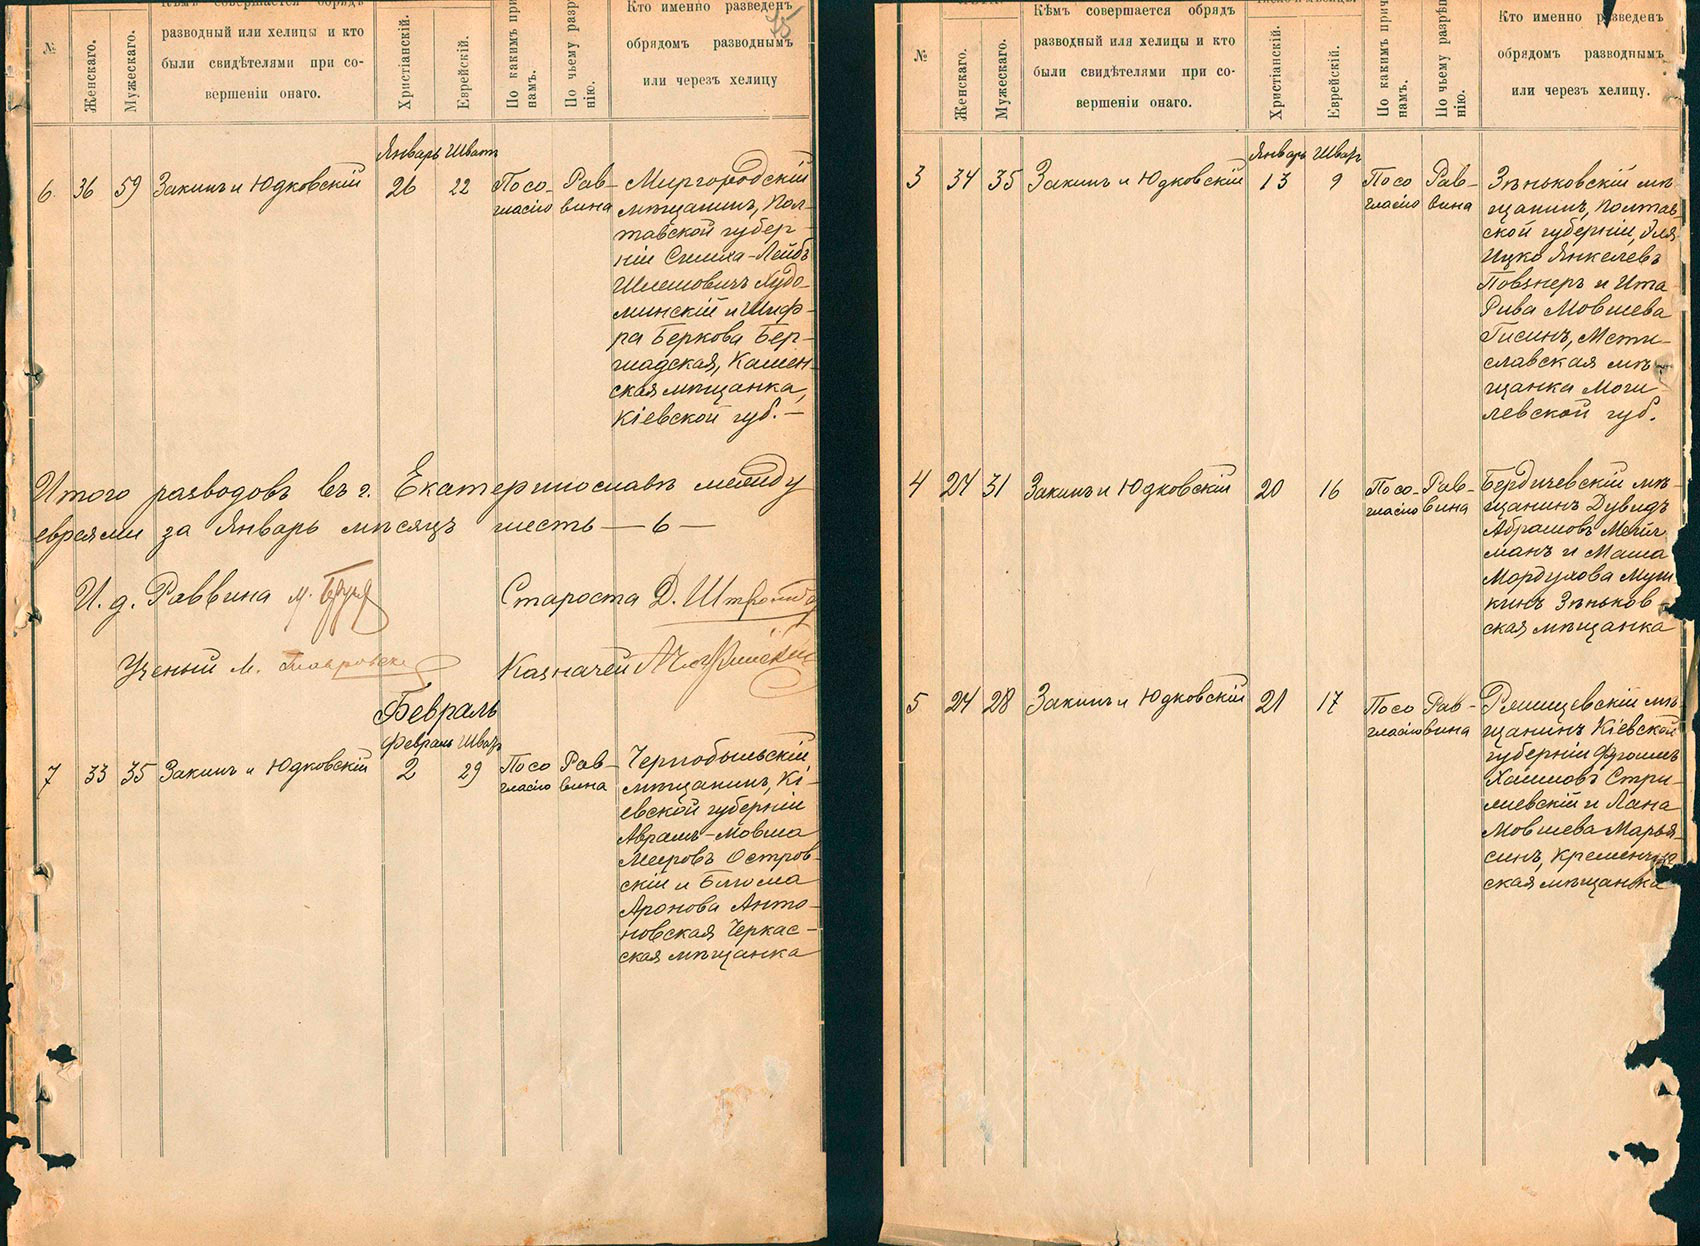 №
Женскаго.
Мужескаго.
Кѣмъ совершается обрядъ
разводный или хелицы и кто
были свидѣтелями при со-
вершеніи онаго.
Христіанскій.
Еврейскій.
По какимъ при
намъ.
По чьему разр
нію.
Кто именно разведенъ
обрядомъ разводнымъ
или черезъ хелицу
Январь Шватъ
6 36 59 Закинъ и Юдковскій 26 22 По со- Рав-
гласію вина
Миргородскій
мѣщанинъ, Пол-
тавской губер-
ніи Симха-Лейбъ
Шлемовичъ Худо-
минскій и Шиф-
ра Беркова Бер-
шадская, Камен-
ская мѣщанка,
Кіевской губ. —
Итого разводовъ въ г. Екатеринославѣ между
евреями за Январь мѣсяцъ шесть — 6 —
И. д. Раввина Староста Д.
Ученый М. Казначей
Февраль
Февраль Шватъ
7 33 35 Закинъ и Юдковскій 2 29 По со Рав-
гласію вина
Чернобыльскій
мѣщанинъ, Кі-
евской губерніи
Аврамъ-Мовша
Меѣровъ Остров-
скій и Блюма
Аронова Анто-
новская Черкас-
ская мѣщанка
№
Женскаго.
Мужескаго.
Кѣмъ совершается обрядъ
разводный или хелицы и кто
были свидѣтелями при со-
вершеніи онаго.
Христіанскій.
Еврейскій.
По какимъ прич
намъ.
По чьему разрѣш
нію.
Кто именно разведенъ
обрядомъ разводнымъ
или черезъ хелицу.
Январь Шватъ
3 34 35 Закинъ и Юдковскій 13 9 По со Рав-
гласію вина
Зѣньковскій мѣ
щанинъ, Полтав-
ской губерніи, Эля
Ицко Янкелевъ
Повзнеръ и Ита
Рива Мовшева
Гисинъ, Мсти-
славская мѣ-
щанка Моги
левской губ.
4 24 31 Закинъ и Юдковскій 20 16 По со- Рав-
гласію вина
Бердичевскій мѣ-
щанинъ Дувидъ
Абрамовъ
манъ и Маша
Мордухова Муш
кинъ Зѣньков-
ская мѣщанка
5 24 28 Закинъ и Юдковскій 21 17 По со Рав-
гласію вина
Ржищевскій мѣ-
щанинъ Кіевской
губерніи Фроимъ
Хаимовъ Стри-
жевскій и Хана
Мовшева Марья-
синъ, Кременчуг
ская мѣщанка